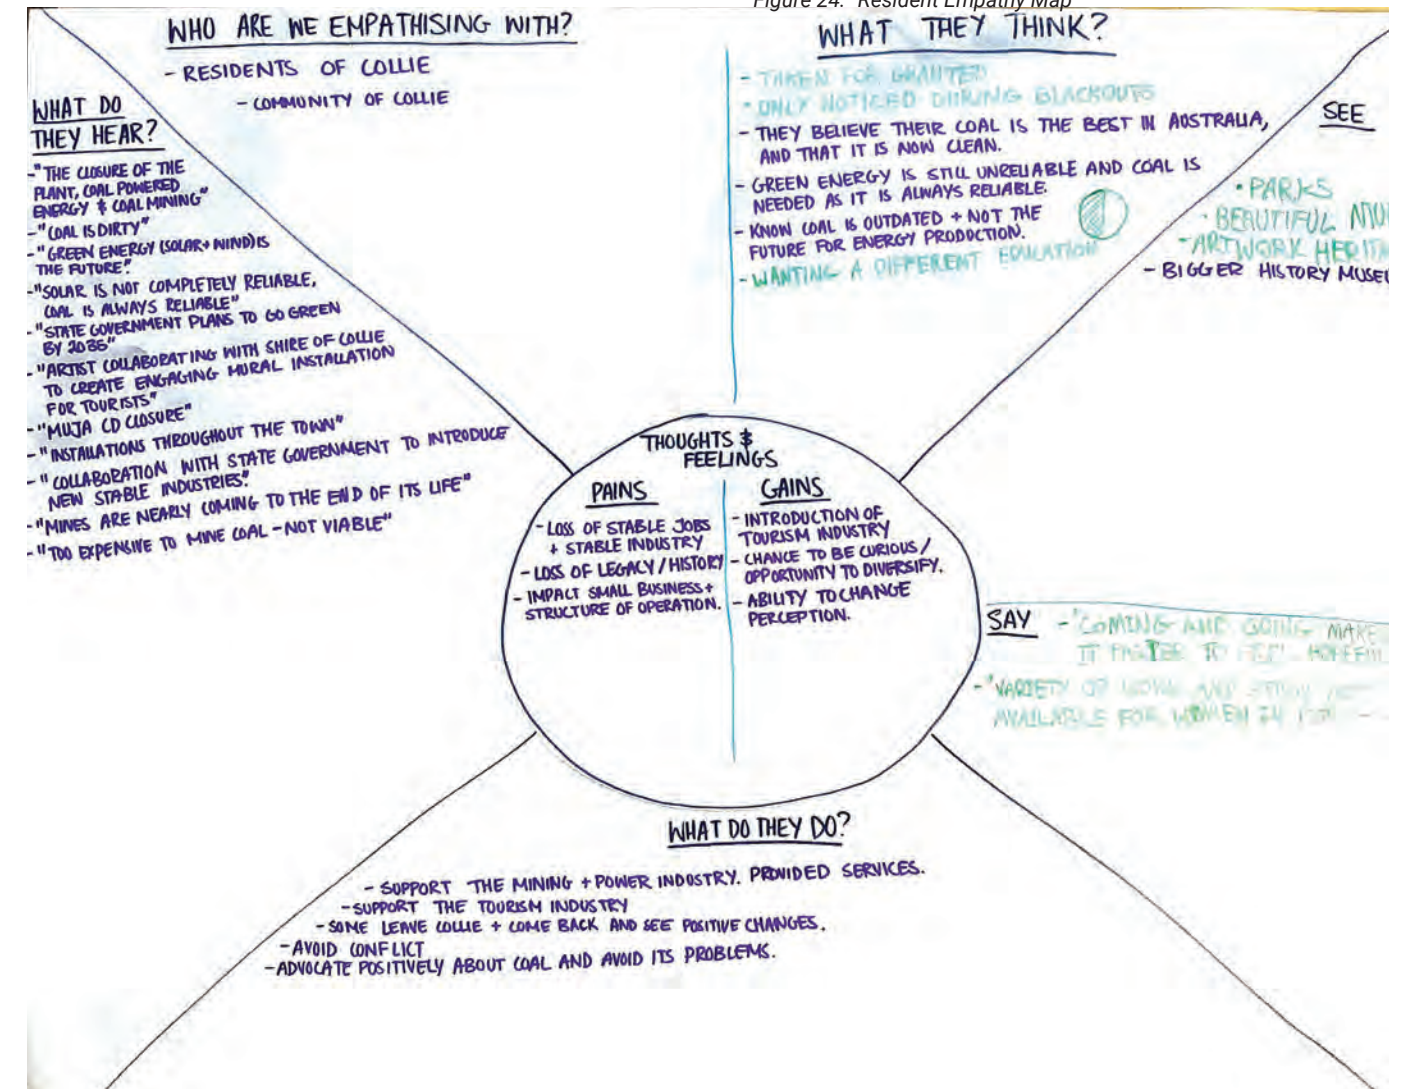 Figure 24: Resident Empathy Map
WHO ARE WE EMPATHISING WITH?
- RESIDENTS OF COLLIE
- COMMUNITY OF COLLIE
WHAT DO
THEY HEAR?
- "THE CLOSURE OF THE
PLANT, COAL POWERED
ENERGY & COAL MINING"
- "COAL IS DIRTY"
- "GREEN ENERGY (SOLAR + WIND) IS
THE FUTURE."
- "SOLAR IS NOT COMPLETELY RELIABLE,
COAL IS ALWAYS RELIABLE"
- "STATE GOVERNMENT PLANS TO GO GREEN
BY
- "ARTIST COLLABORATING WITH SHIRE OF COLLIE
TO CREATE ENGAGING MURAL INSTALLATION
FOR TOURISTS"
- "MUJA CD CLOSURE"
- "INSTALLATIONS THROUGHOUT THE TOWN"
- "COLLABORATION WITH STATE GOVERNMENT TO INTRODUCE
NEW STABLE INDUSTRIES."
- "MINES ARE NEARLY COMING TO THE END OF ITS LIFE"
- "TOO EXPENSIVE TO MINE COAL - NOT VIABLE"
WHAT THEY THINK?
- TAKEN FOR GRANTED
- ONLY NOTICED DURING BLACKOUTS
- THEY BELIEVE THEIR COAL IS THE BEST IN AUSTRALIA,
AND THAT IT IS NOW CLEAN.
- GREEN ENERGY IS STILL UNRELIABLE AND COAL IS
NEEDED AS IT IS ALWAYS RELIABLE.
- KNOW COAL IS OUTDATED + NOT THE
FUTURE FOR ENERGY PRODUCTION.
- WANTING A DIFFERENT EDUCATION
SEE
• PARKS
• BEAUTIFUL
- ARTWORK
- BIGGER HISTORY
THOUGHTS &
FEELINGS
PAINS
- LOSS OF STABLE JOBS
+ STABLE INDUSTRY
- LOSS OF LEGACY / HISTORY
- IMPACT SMALL BUSINESS +
STRUCTURE OF OPERATION.
GAINS
- INTRODUCTION OF
TOURISM INDUSTRY
- CHANCE TO BE CURIOUS /
OPPORTUNITY TO DIVERSIFY.
- ABILITY TO CHANGE
PERCEPTION.
SAY
- "COMING AND GOING MAKE
IT TO
- "VARIETY OF AND
AVAILABLE FOR WOMEN IN
WHAT DO THEY DO?
- SUPPORT THE MINING + POWER INDUSTRY. PROVIDED SERVICES.
- SUPPORT THE TOURISM INDUSTRY
- SOME LEAVE COLLIE + COME BACK AND SEE POSITIVE CHANGES.
- AVOID CONFLICT
- ADVOCATE POSITIVELY ABOUT COAL AND AVOID ITS PROBLEMS.